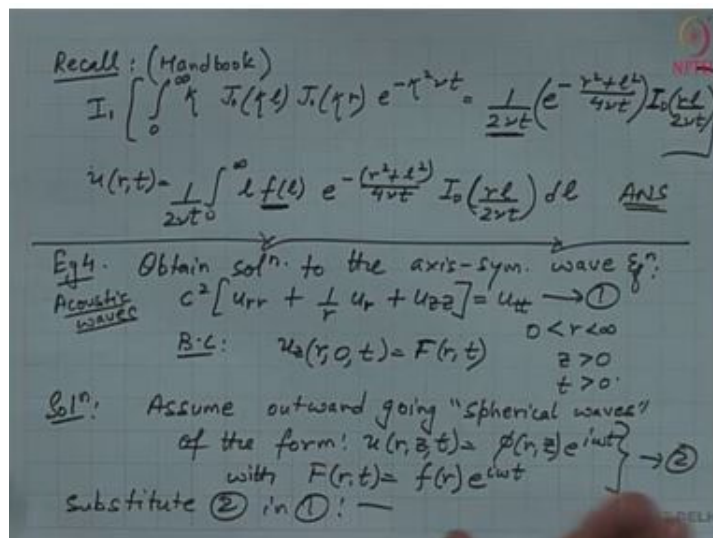 Recall: (Handbook)
I₁ [∫₀^∞ κ J₀(κl) J₀(κr) e^{-κ²νt} = 1/2νt (e^{-(r²+l²)/4νt}) I₀(rl/2νt)]
u(r,t) = 1/2νt ∫₀^∞ l f(l) e^{-(r²+l²)/4νt} I₀(rl/2νt) dl ANS
Eg 4. Obtain solⁿ. to the axis-sym. wave Eqⁿ:
Acoustic waves c²[u_rr + 1/r u_r + u_zz] = u_tt → ①
0<r<∞
B.C: u_z(r,0,t) = F(r,t)
z>0
t>0.
Solⁿ: Assume outward going "spherical waves"
of the form: u(r,z,t) = φ(r,z)e^{iωt} } → ②
with F(r,t) = f(r)e^{iωt}
substitute ② in ①: —